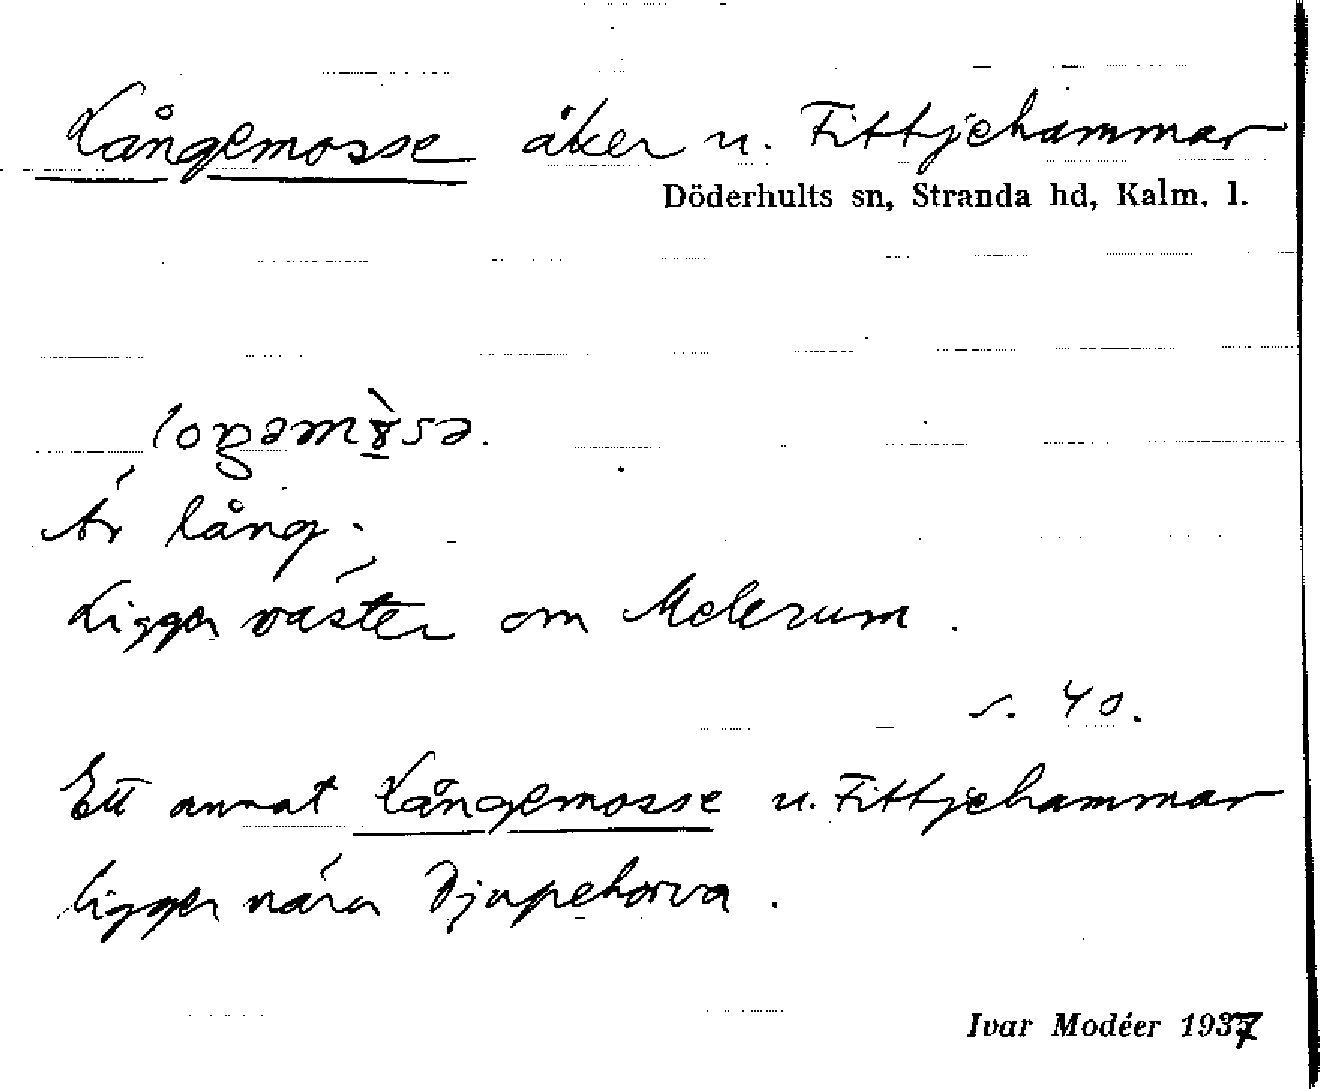 Långemosse åker u. Fittjehammar
Döderhults sn, Stranda hd, Kalm. l.
Är lång.
Ligger väster om Melerum.
s. 40.
Ett annat Långemosse u. Fittjehammar
ligger nära Djupehorva.
Ivar Modéer 1937